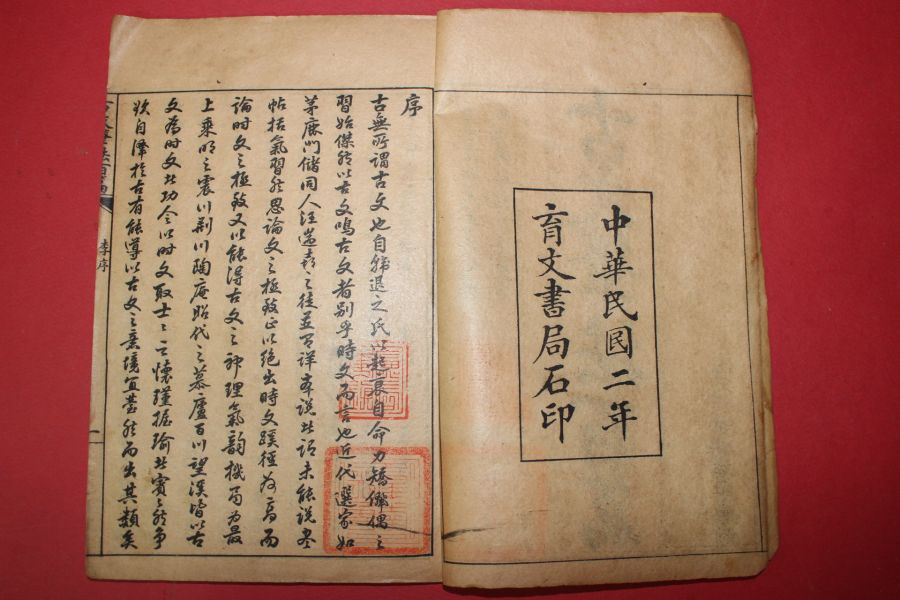 中華民國二年
育文書局石印
序
古無所謂古文也自韓退之氏以起衰自命力矯儷偶之
習始傑然以古文鳴古文者別乎時文而言也近代選家如
茅鹿門儲同人汪遄喜之徒並有評本說者謂未能脫盡
帖括氣習然思論文之極致正以絕出時文蹊徑為高而
論時文之極致又以能得古文之神理氣韻機局為最
上乘明之震川荊川陶庵昭代之慕廬百川望溪皆以古
文為時文者功令以時文取士士之懷瑾握瑜者賓賓然爭
欲自澤於古有能導以古文之意境宜甚然而出其類矣
李序